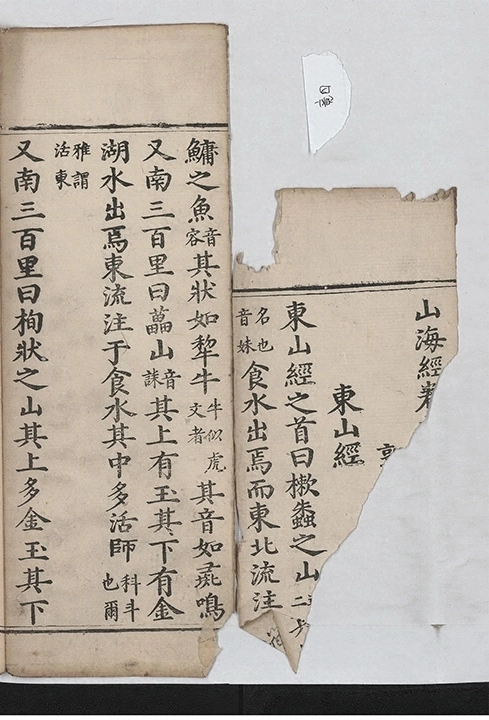 山海經
東山經
東山經之首曰樕䘞之山
名也音妹食水出焉而東北流注
鱅之魚音容其狀如犂牛牛似虎文者其音如彘鳴
又南三百里曰藟山音誄其上有玉其下有金
湖水出焉東流注于食水其中多活師科斗也爾
雅謂活東
又南三百里曰栒狀之山其上多金玉其下